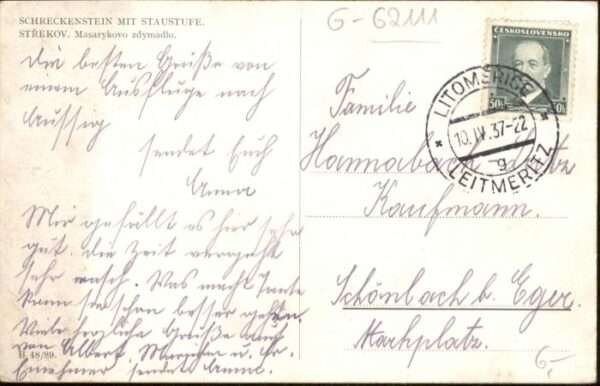 SCHRECKENSTEIN MIT STAUSTUFE.
STŘEKOV. Masarykovo zdymadlo.
Die besten Grüße von
einem Ausfluge nach
Aussig
sendet Euch
Anna
Mir gefällt es hier sehr
gut. Die Zeit vergeht
sehr rasch. Was macht Tante
kann sie schon besser gehen.
Viele herzliche Grüße auch
von Albert, u.
sendet Anna.
B. 48/89.
G-62111
ČESKOSLOVENSKO
50h
LITOMĚŘICE
10. IV. 37-22
g
LEITMERITZ
Familie
Hannabach
Kaufmann.
Schönbach b. Eger.
Marktplatz.
6-